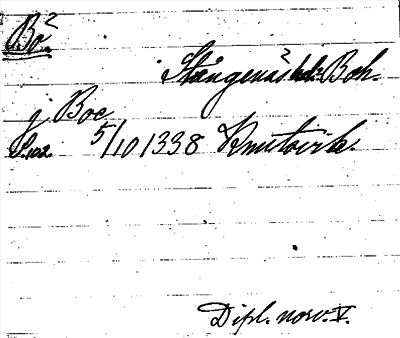 Bö?
Stångenäs hd. Boh.
j Boe
S. 102. 5/10 1338 Knutsvik.
Dipl. norv. V.